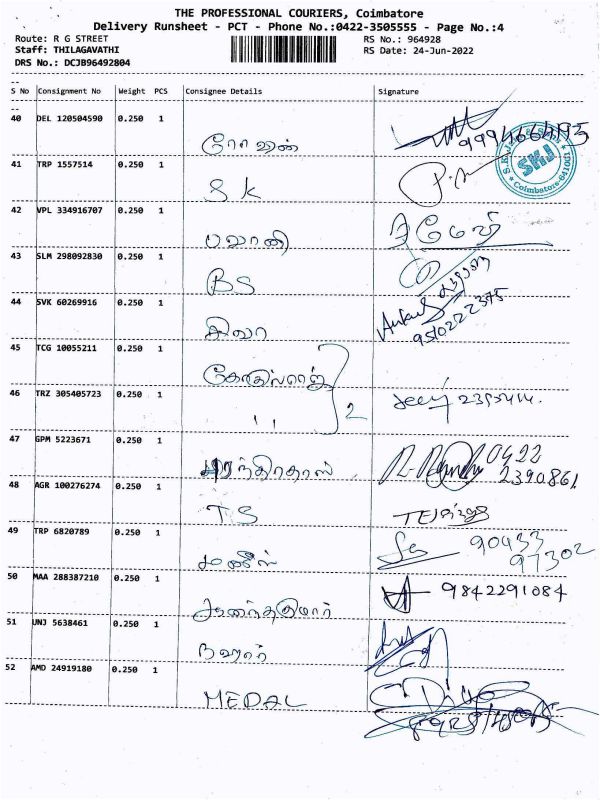 THE PROFESSIONAL COURIERS, Coimbatore
Delivery Runsheet - PCT - Phone No.:0422-3505555 - Page No.:4
Route: R G STREET RS No.: 964928
Staff: THILAGAVATHI RS Date: 24-Jun-2022
DRS No.: DCJB96492804
S No Consignment No Weight PCS Consignee Details Signature
40 DEL 120504590 0.250 1
ரோஷன் 9994664193
41 TRP 1557514 0.250 1
SK
SKJ
Coimbatore-641001
42 VPL 334916707 0.250 1
பவானி
43 SLM 298092830 0.250 1
BS
44 SVK 60269916 0.250 1
சிவா 9510222375
45 TCG 10055211 0.250 1
46 TRZ 305405723 0.250 1
" 2
47 GPM 5223671 0.250 1
0422
2390861
48 AGR 100276274 0.250 1
TS
49 TRP 6820789 0.250 1
90433
97302
50 MAA 288387210 0.250 1
ஆனந்தகுமார் 9842291084
51 UNJ 5638461 0.250 1
நஹார்
52 AMD 24919180 0.250 1
MEDAL